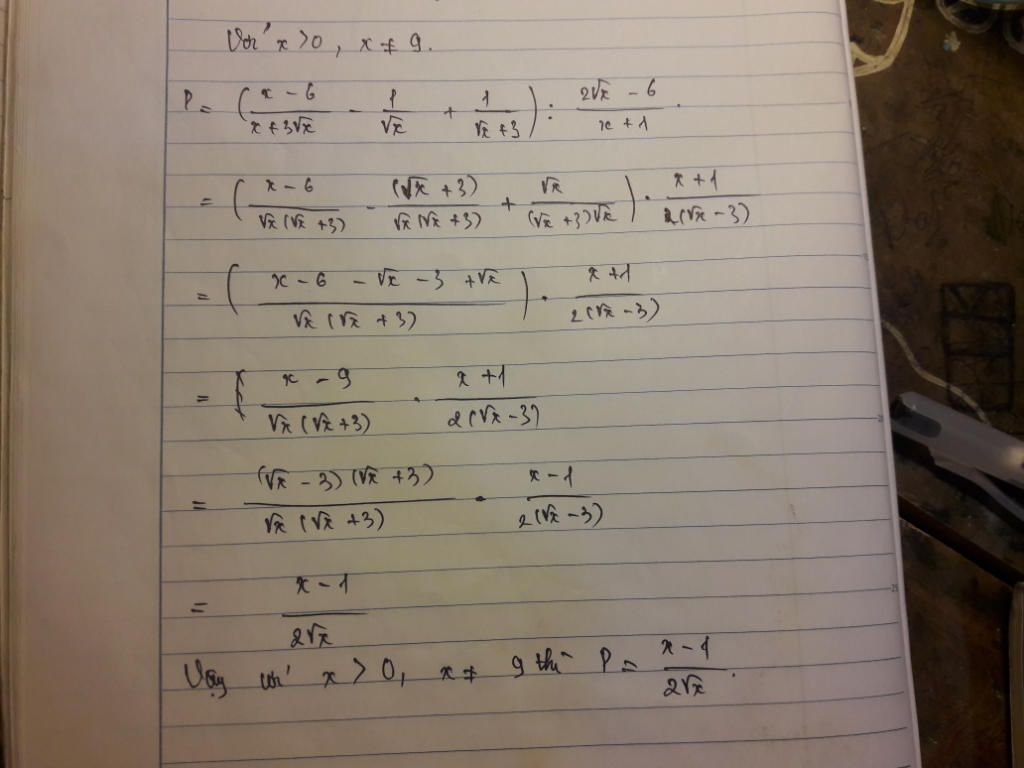 Với x > 0, x ≠ 9.
P = (x - 6 / x + 3√x - 1 / √x + 1 / √x + 3) : 2√x - 6 / x + 1.
= (x - 6 / √x (√x + 3) - (√x + 3) / √x (√x + 3) + √x / (√x + 3)√x) . x + 1 / 2(√x - 3)
= (x - 6 - √x - 3 + √x / √x (√x + 3)) . x + 1 / 2(√x - 3)
= x - 9 / √x (√x + 3) . x + 1 / 2(√x - 3)
= (√x - 3)(√x + 3) / √x (√x + 3) . x - 1 / 2(√x - 3)
= x - 1 / 2√x
Vậy với x > 0, x ≠ 9 thì P = x - 1 / 2√x.